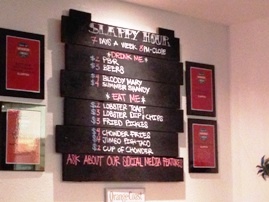 SLAPPY HOUR
7 DAYS A WEEK 3PM-CLOSE
*DRINK ME*
$2 PBR
$3 BEERS
$4 BLOODY MARY
$4 SUMMER SHANDY
*EAT ME*
$1 LOBSTER TOAST
$2 LOBSTER DIP & CHIPS
$3 FRIED PICKLES
CHOWDER FRIES
$4 JIMBO FISH TACO
$2 CUP OF CHOWDER
ASK ABOUT OUR SOCIAL MEDIA FEATURE!